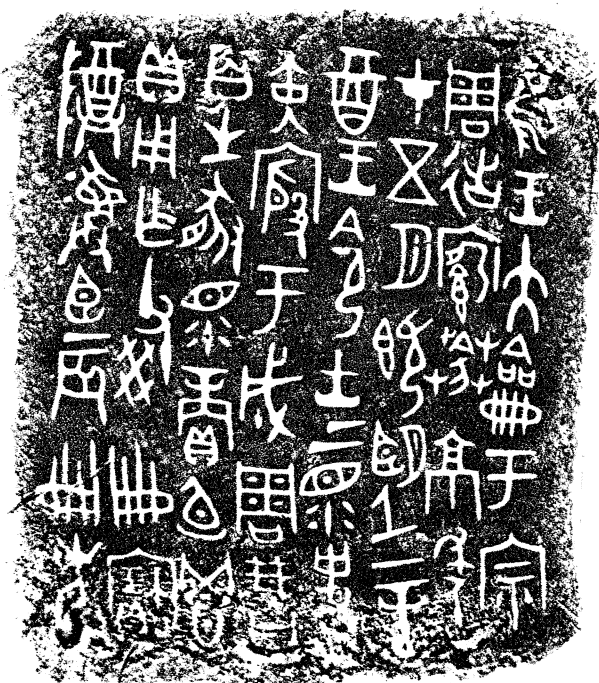 隹王大龠于宗
周徣𡪂𦰩京年
才五月既望辛
酉王令士上眔史
寅𡪂于成周
百生豚眔商卣鬯
貝用乍父癸寶
尊彝臣辰冊